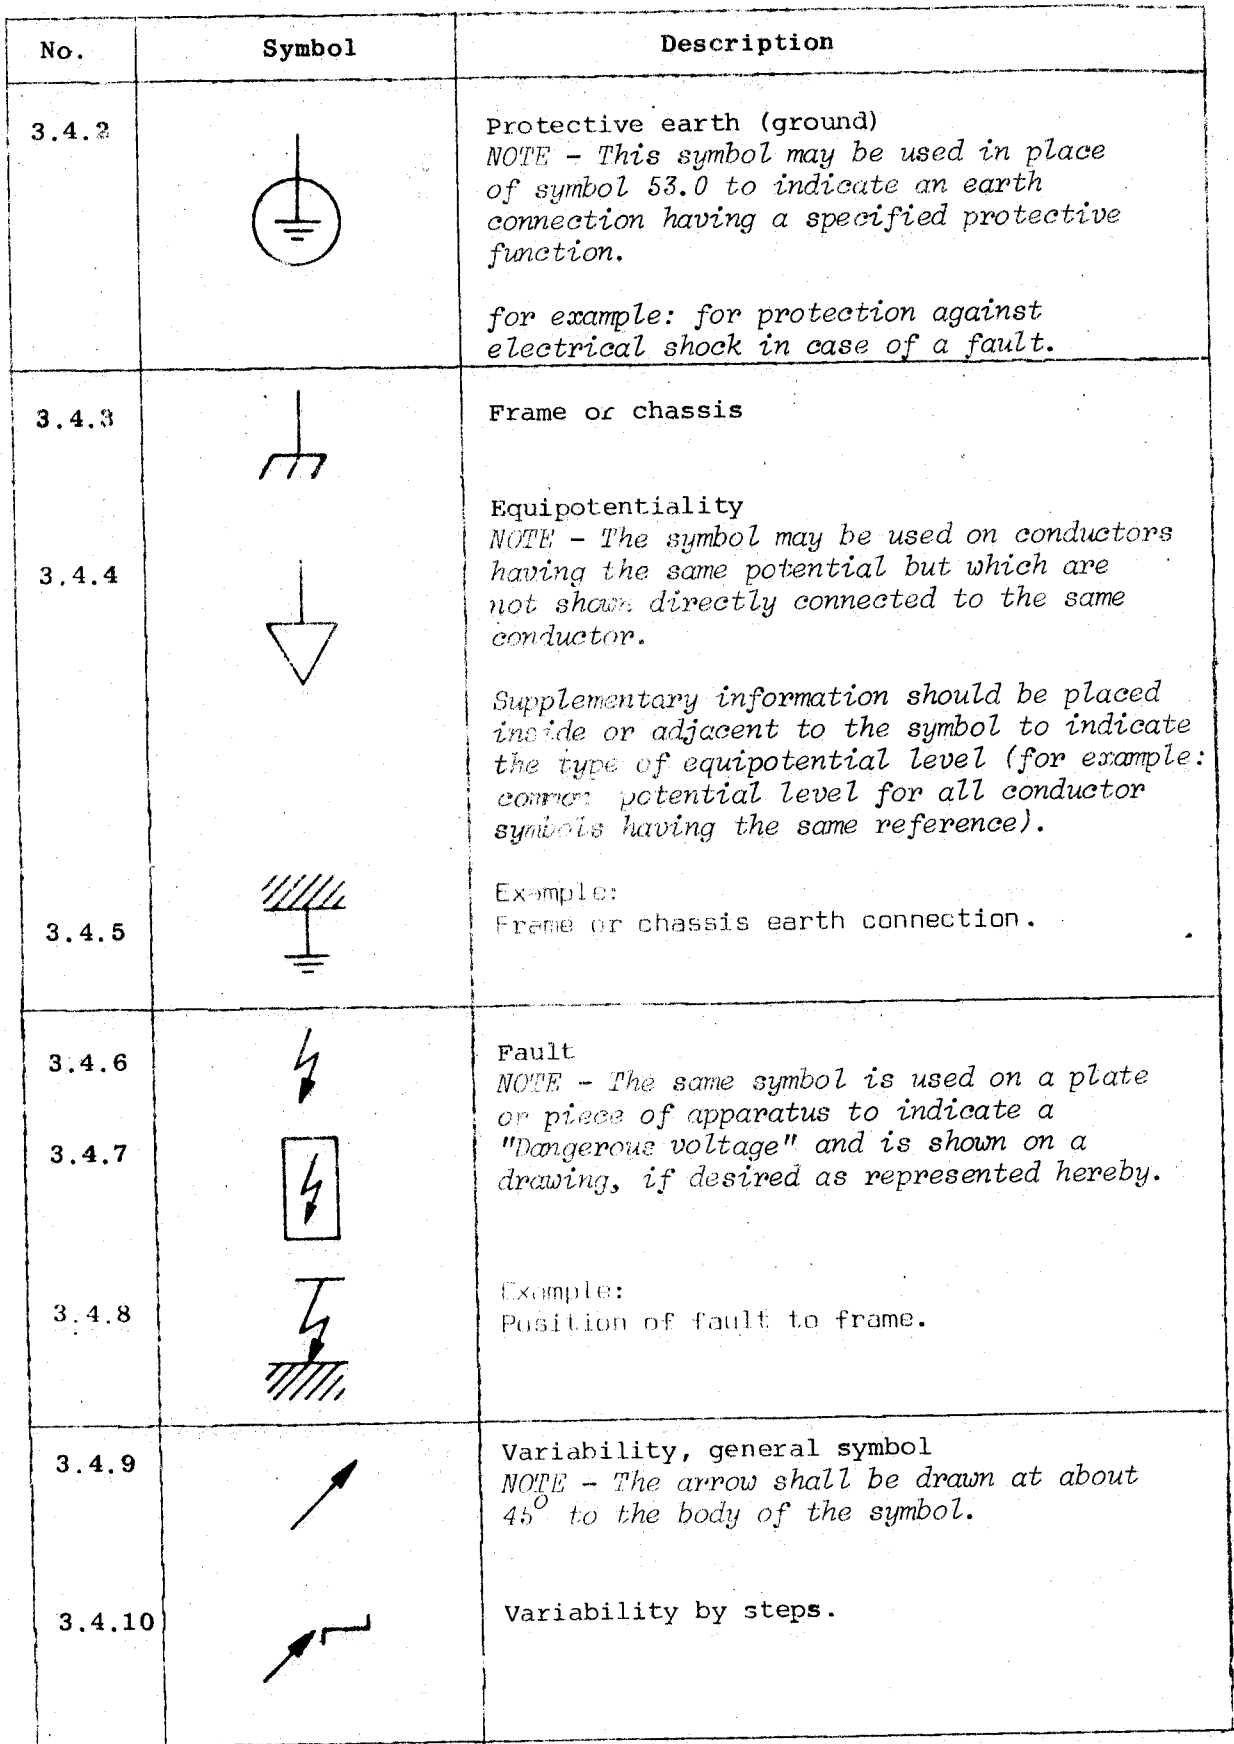 No. Symbol Description
3.4.2 Protective earth (ground)
NOTE - This symbol may be used in place
of symbol 53.0 to indicate an earth
connection having a specified protective
function.
for example: for protection against
electrical shock in case of a fault.
3.4.3 Frame or chassis
Equipotentiality
NOTE - The symbol may be used on conductors
3.4.4 having the same potential but which are
not shown directly connected to the same
conductor.
Supplementary information should be placed
inside or adjacent to the symbol to indicate
the type of equipotential level (for example:
common potential level for all conductor
symbols having the same reference).
Example:
3.4.5 Frame or chassis earth connection.
3.4.6 Fault
NOTE - The same symbol is used on a plate
or piece of apparatus to indicate a
3.4.7 "Dangerous voltage" and is shown on a
drawing, if desired as represented hereby.
Example:
3.4.8 Position of fault to frame.
3.4.9 Variability, general symbol
NOTE - The arrow shall be drawn at about
45° to the body of the symbol.
3.4.10 Variability by steps.